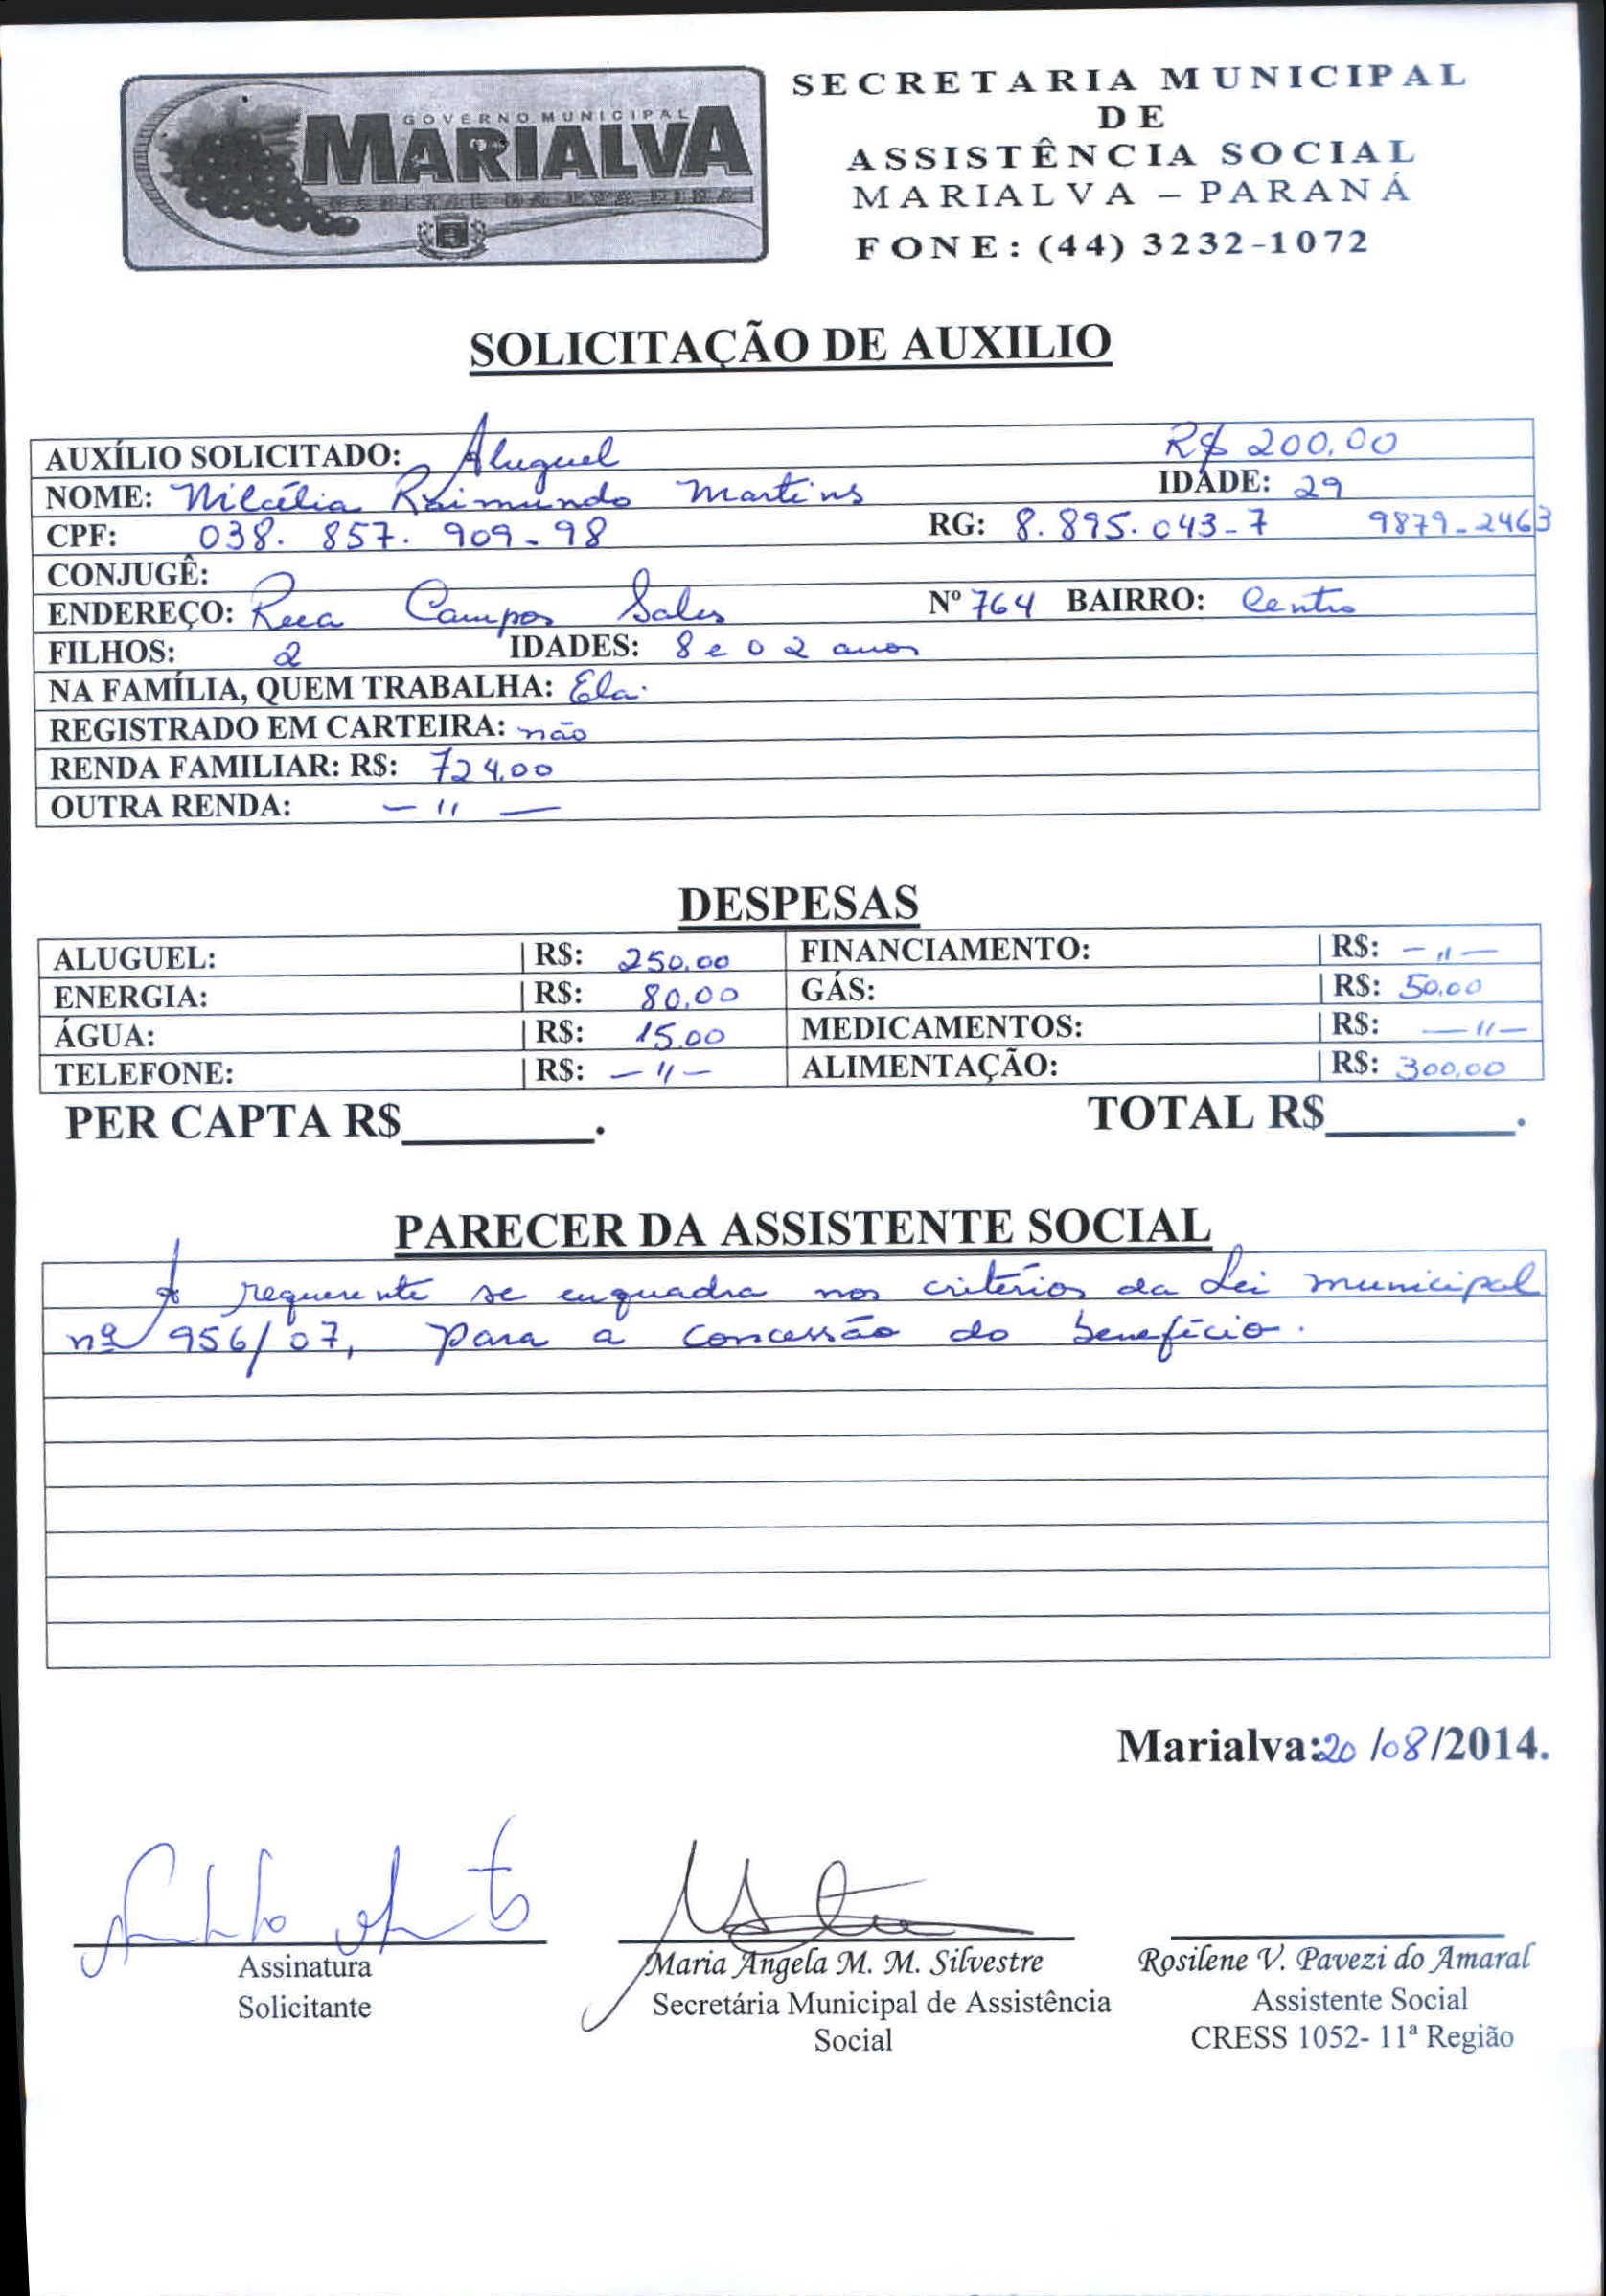 GOVERNO MUNICIPAL
MARIALVA
CAPITAL DA UVA FINA
SECRETARIA MUNICIPAL
DE
ASSISTÊNCIA SOCIAL
MARIALVA – PARANÁ
FONE: (44) 3232-1072
SOLICITAÇÃO DE AUXILIO
AUXÍLIO SOLICITADO: Aluguel R$ 200,00
NOME: Nilcélia Raimundo Martins IDADE: 29
CPF: 038. 857. 909-98 RG: 8.895.043-7 9879-2463
CONJUGÊ:
ENDEREÇO: Rua Campos Sales Nº 764 BAIRRO: Centro
FILHOS: 2 IDADES: 8 e 02 anos
NA FAMÍLIA, QUEM TRABALHA: Ela.
REGISTRADO EM CARTEIRA: não
RENDA FAMILIAR: R$: 724,00
OUTRA RENDA: — " —
DESPESAS
ALUGUEL: R$: 250,00 FINANCIAMENTO: R$: — " —
ENERGIA: R$: 80,00 GÁS: R$: 50,00
ÁGUA: R$: 15,00 MEDICAMENTOS: R$: — " —
TELEFONE: R$: — " — ALIMENTAÇÃO: R$: 300,00
PER CAPTA R$________. TOTAL R$________.
PARECER DA ASSISTENTE SOCIAL
A requerente se enquadra nos critérios da Lei municipal
nº 956/07, para a concessão do benefício.
Marialva:20/08/2014.
Assinatura
Solicitante
Maria Angela M. M. Silvestre
Secretária Municipal de Assistência
Social
Rosilene V. Pavezi do Amaral
Assistente Social
CRESS 1052- 11ª Região